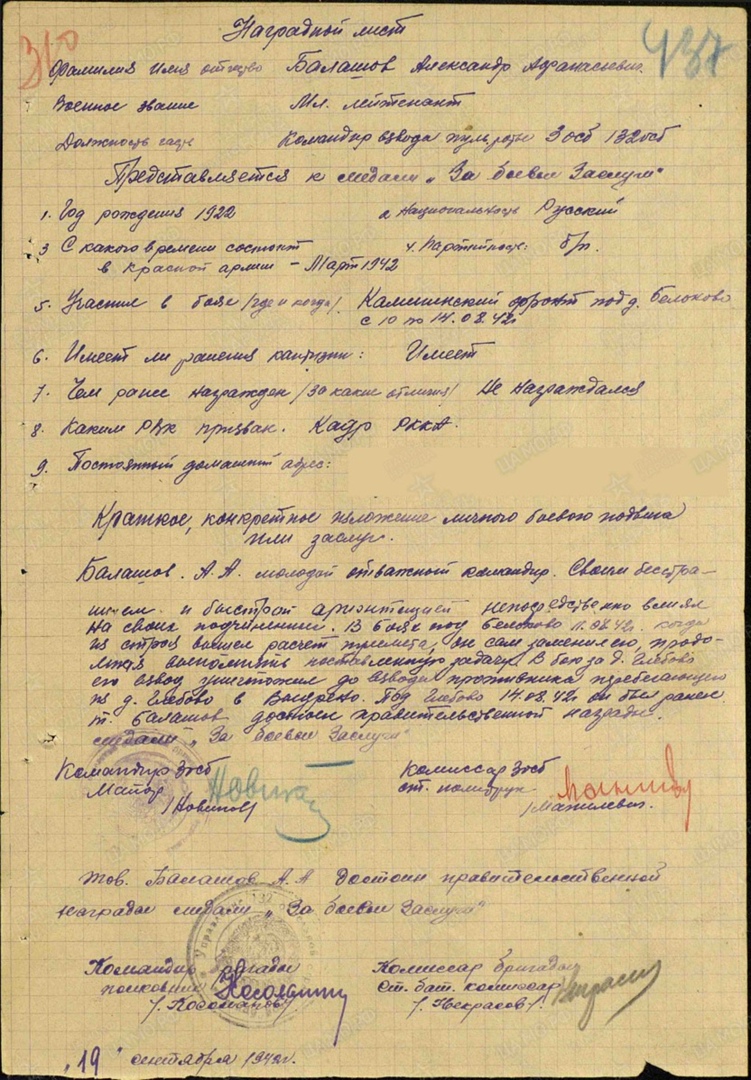 310
437
Наградной лист
Фамилия имя отчество Балашов Александр Афанасьевич.
Военное звание Мл. лейтенант
Должность часть Командир взвода пуль. роты 3 осб 132 осб
Представляется к медали „За боевые Заслуги"
1. Год рождения 1922 2. Национальность Русский
3 С какого времени состоит 4. Партийность: б/п.
в Красной армии – Март 1942
5. Участил в боях /где и когда/. Калининский фронт под д. Белоково
с 10 по 14.08.42г
6. Имеет ли ранения контузии: Имеет
7. Чем ранее награжден /за какие отличия/ Не Награждался
8. Каким РВК призван. Кадр РККА.
9. Постоянный домашний адрес:
Краткое, конкретное изложение личного боевого подвига
или заслуг.
Балашов. А.А. молодой отважный командир. Своим бесстра-
шием и быстрой ориентацией непосредственно влиял
на своих подчиненных. В боях под Белоково 11.08.42г. когда
из строя вышел расчет пулемета, он сам заменил его, продо-
лжая выполнять поставленную задачу. В бою за д. Глебово
его взвод уничтожил до взвода противника перебегающего
из д. Глебово в Под Глебово 14.08.42г он был ранен
т. Балашов достоин правительственной награды
медали „За боевые Заслуги"
Командир 3 осб Комиссар 3 осб
Майор ст. политрук
/Новиков/ /Мацилевич.
Тов. Балашов А.А достоин правительственной
награды медали „За боевые Заслуги"
Командир бригады Комиссар бригады
полковник Ст. бат. комиссар
/. Некрасов/.
„19" сентября 1942г.